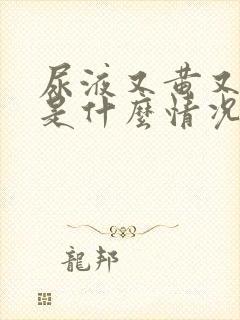 尿液又黄又
是什麼情况
龍邦